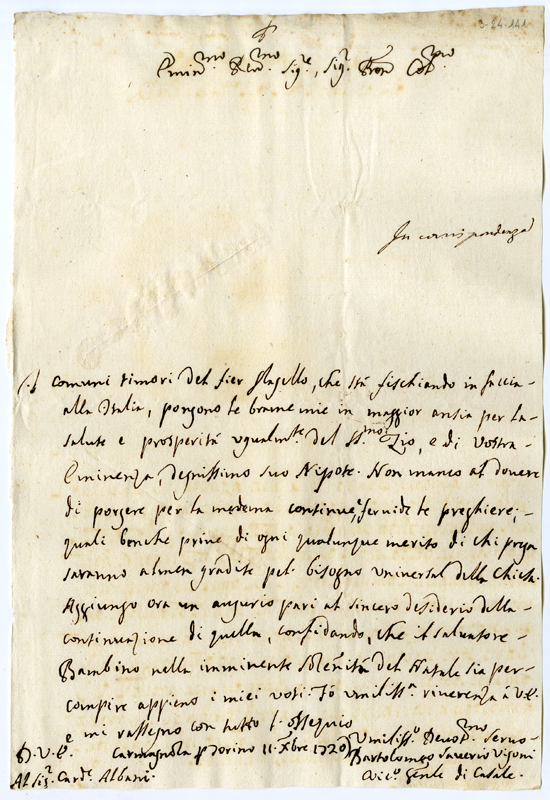 3-24-141
Emin.mo Rev.mo Sig.e, Sig.r Pron Col.mo
In corrispondenza
I comuni timori del fier flagello, che stà fischiando in faccia
alla Italia, pongono le brame mie in maggior ansia per la
salute e prosperità ugualm.te del SS.mo Zio, e di Vostra
Eminenza, degnissimo suo Nipote. Non manco al dovere
di porgere per la medema continue, e fervide le preghiere;
quali benche prive di ogni qualunque merito di chi prega
saranno almen gradite pel bisogno universal della Chiesa.
Aggiungo ora un augurio pari al sincero desiderio della
continuazione di quella, confidando, che il Salvatore
Bambino nella imminente Solennità del Natale sia per
compire appieno i miei voti. Fo umiliss.a riverenza a V.E.
e mi rassegno con tutto l'ossequio
D. V. E.
Carmagnola p Torino 11 Xbre 1720
Umiliss.o Devot.mo Servo
Al Sig.r Card.e Albani.
Bartolomeo Saverio Vigoni
Vic.o Gen.le di Casale.